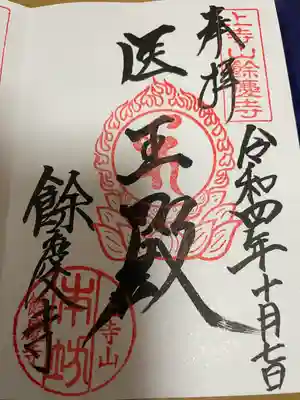 上寺山餘慶寺
奉拝
令和四年十月七日
医王殿
餘慶寺
本坊